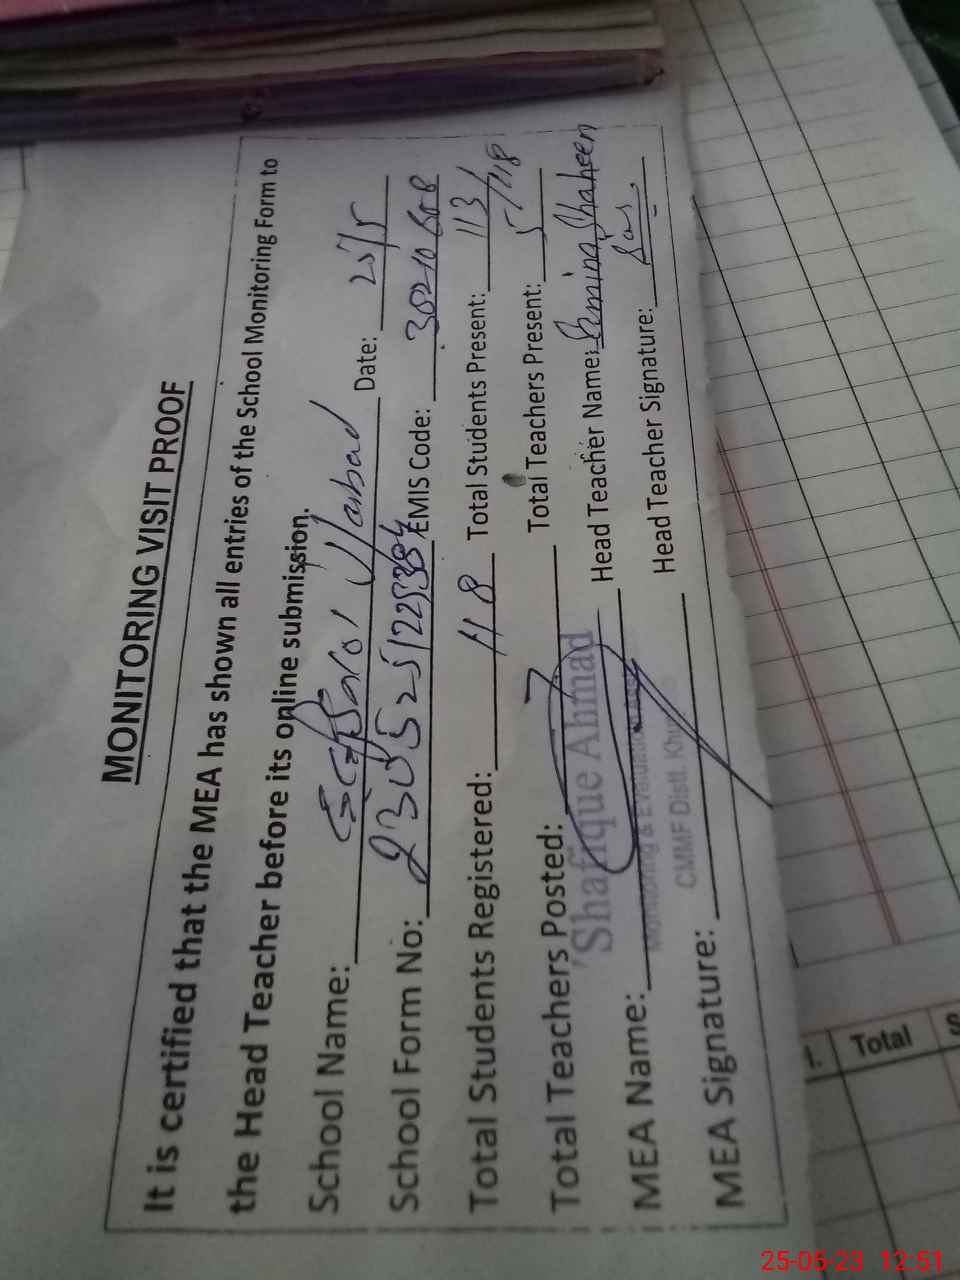 MONITORING VISIT PROOF
It is certified that the MEA has shown all entries of the School Monitoring Form to
the Head Teacher before its online submission.
School Name: Date: 25/5
School Form No: EMIS Code:
Total Students Registered: 118 Total Students Present: 113/118
Total Teachers Posted: 7 Total Teachers Present: 5
MEA Name: Shafique Ahmad Head Teacher Name: Shaheen
Monitoring & Evaluation
CMMF Distt. Khu
MEA Signature: Head Teacher Signature:
Total
25-05-23 12:51